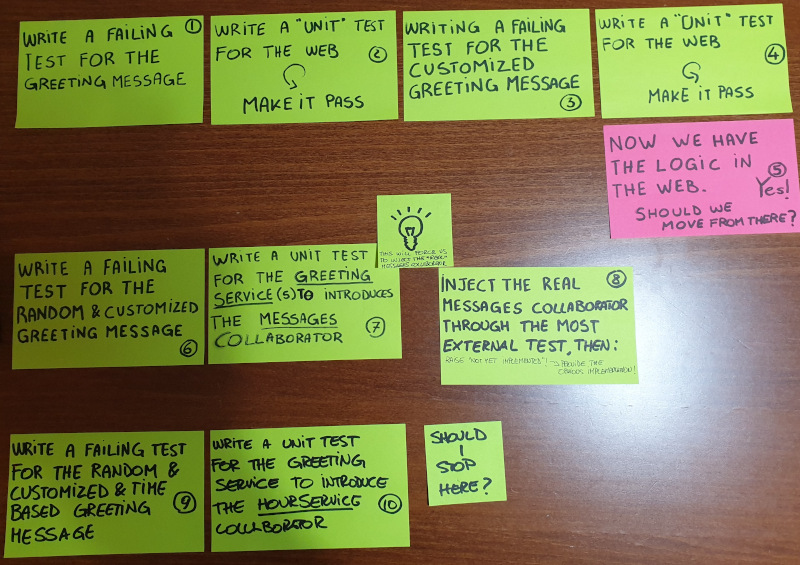 WRITE A FAILING ①
TEST FOR THE
GREETING MESSAGE
WRITE A "UNIT" TEST
FOR THE WEB ②
MAKE IT PASS
WRITING A FAILING
TEST FOR THE
CUSTOMIZED
GREETING MESSAGE
③
WRITE A "UNIT" TEST
FOR THE WEB ④
MAKE IT PASS
NOW WE HAVE
THE LOGIC IN ⑤
THE WEB. Yes!
SHOULD WE
MOVE FROM THERE?
WRITE A FAILING
TEST FOR THE
RANDOM & CUSTOMIZED
GREETING MESSAGE
⑥
WRITE A UNIT TEST
FOR THE GREETING
SERVICE (S) TO INTRODUCES
THE MESSAGES
COLLABORATOR ⑦
THIS WILL FORCE US
TO INJECT THE "REAL"
MESSAGES COLLABORATOR
INJECT THE REAL ⑧
MESSAGES COLLABORATOR
THROUGH THE MOST
EXTERNAL TEST, THEN:
RAISE "NOT YET IMPLEMENTED"! → PROVIDE THE
OBVIOUS IMPLEMENTATION!
WRITE A FAILING TEST
FOR THE RANDOM &
CUSTOMIZED & TIME
BASED GREETING ⑨
MESSAGE
WRITE A UNIT TEST
FOR THE GREETING
SERVICE TO INTRODUCE
THE HOURSERVICE
COLLBORATOR ⑩
SHOULD
I
STOP
HERE?